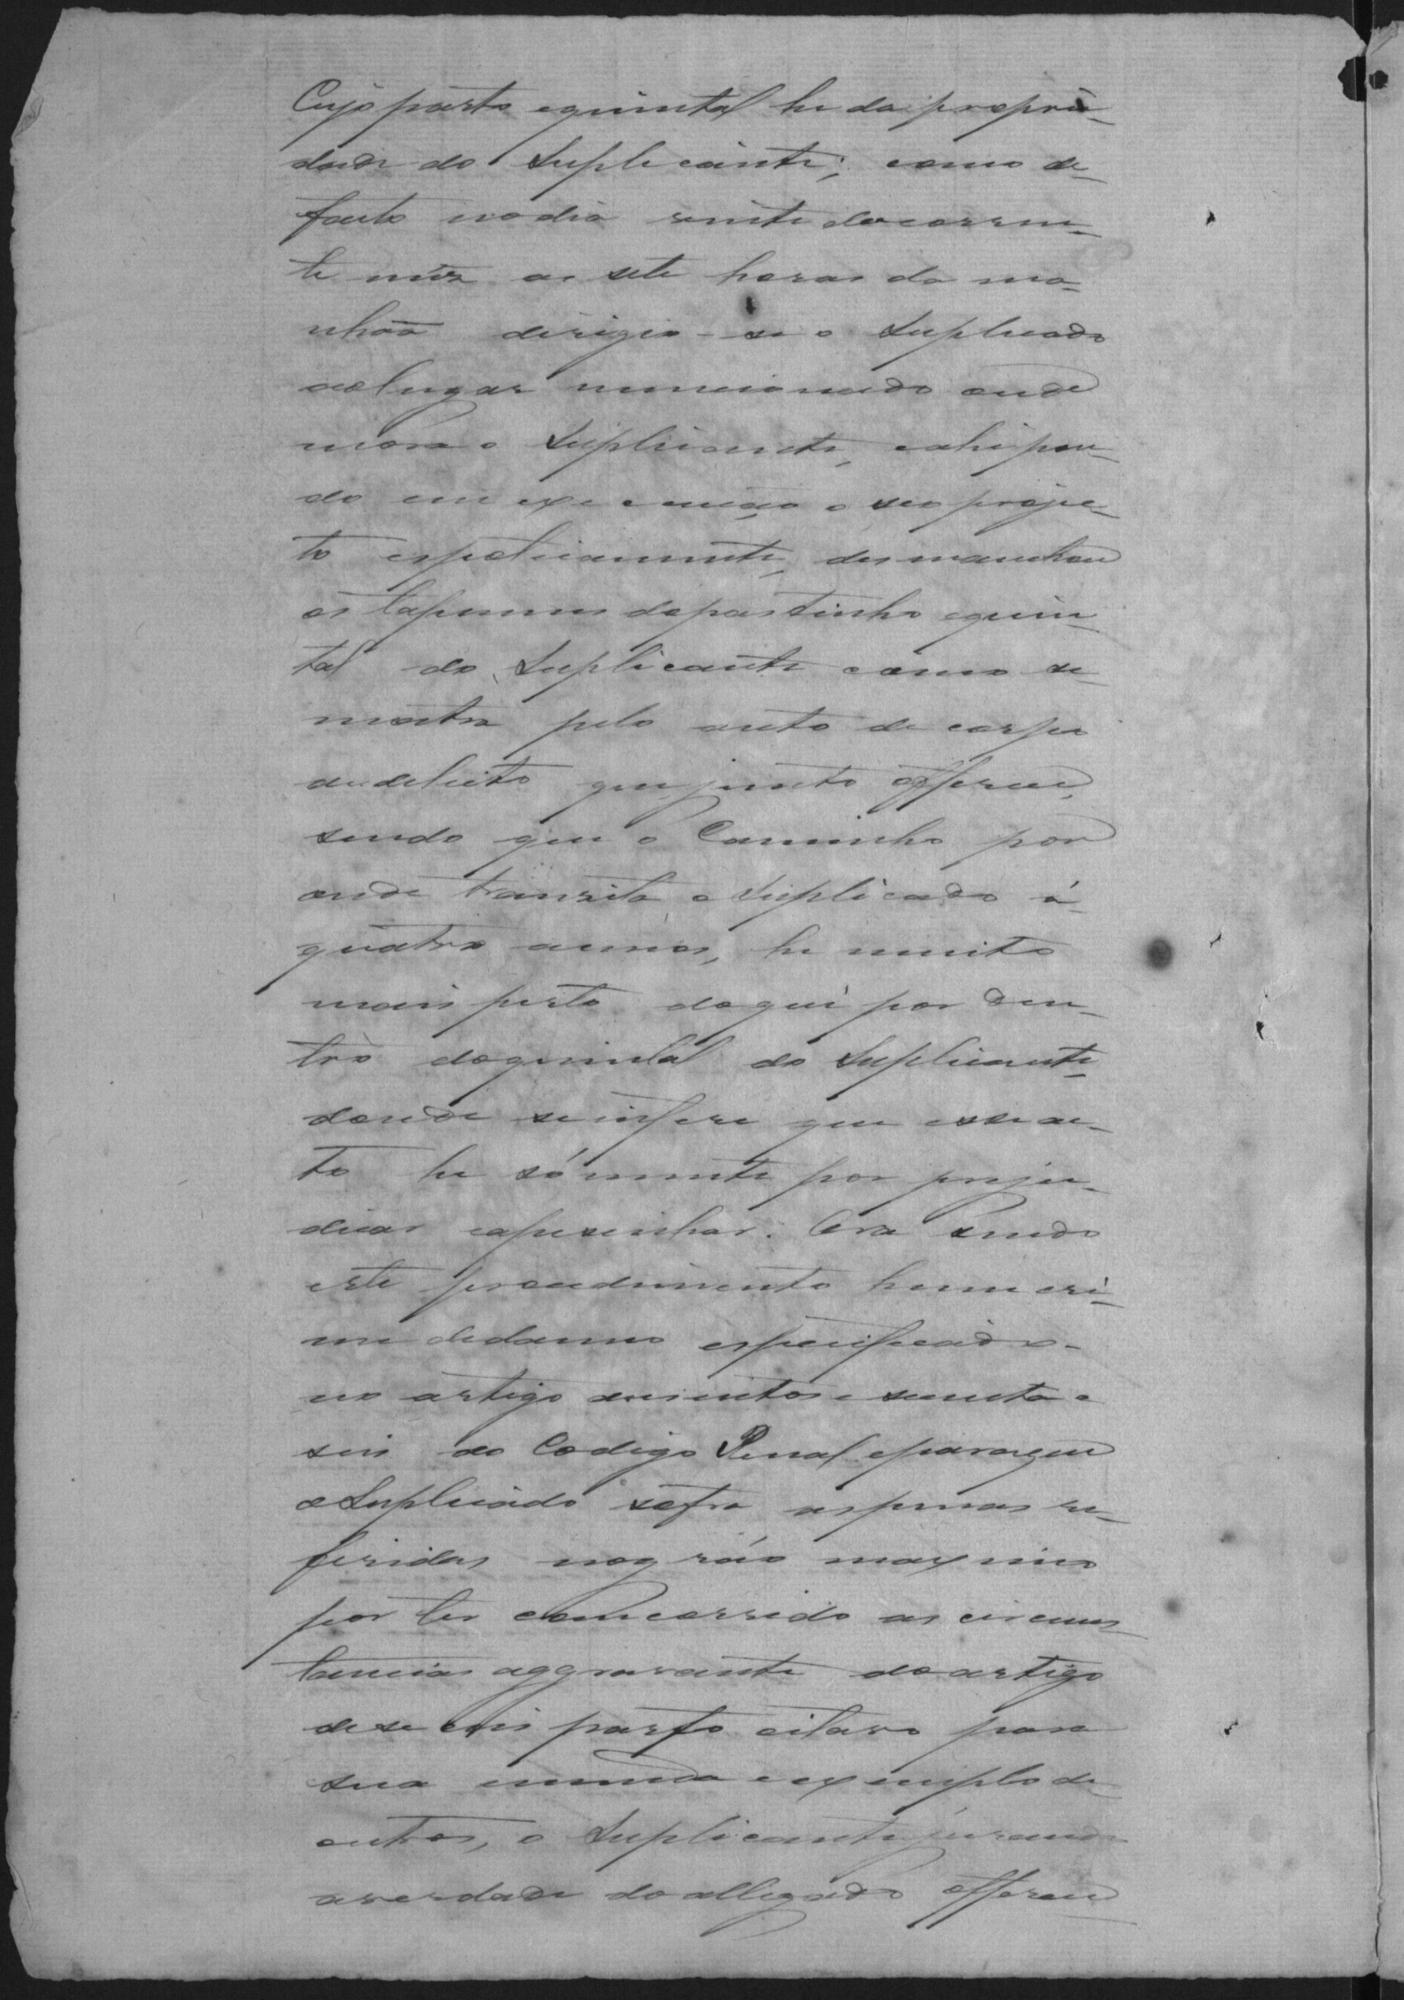 Cujo pasto e quintal he da proprie-
dade do Suplicante; como de-
facto no dia vinte do corren-
te mez as sete horas da ma-
nhãa dirigio-se o Suplicado
ao lugar mencionado onde
mora o Suplicante, e ahi pon-
do em execução o seo projec-
to espoticamente, desmanchou
os tapumes do pastinho e quin-
tal do Suplicante como se
mostra pelo auto de corpo
de delicto que junto offerece,
sendo que o Caminho por
onde tranzita o Suplicado á
quatro annos, he muito
mais perto do qui por den-
tro do quintal do Suplicante
donde se infere que esse ac-
to he sómente por preju-
dicar e apesinhar. Ora sendo
este procedimento hum cri-
me de damno especificado
no artigo dusentos e secenta e
seis do Codigo Penal e para que
o Suplicado sofra as penas re-
feridas no gráo maximo
por ter comcorrido as circuns-
tancias aggravante do artigo
deseceis parfo oitavo para
sua emenda e exemplo de
outros, o Suplicante jurando
a verdade do allegado offerece